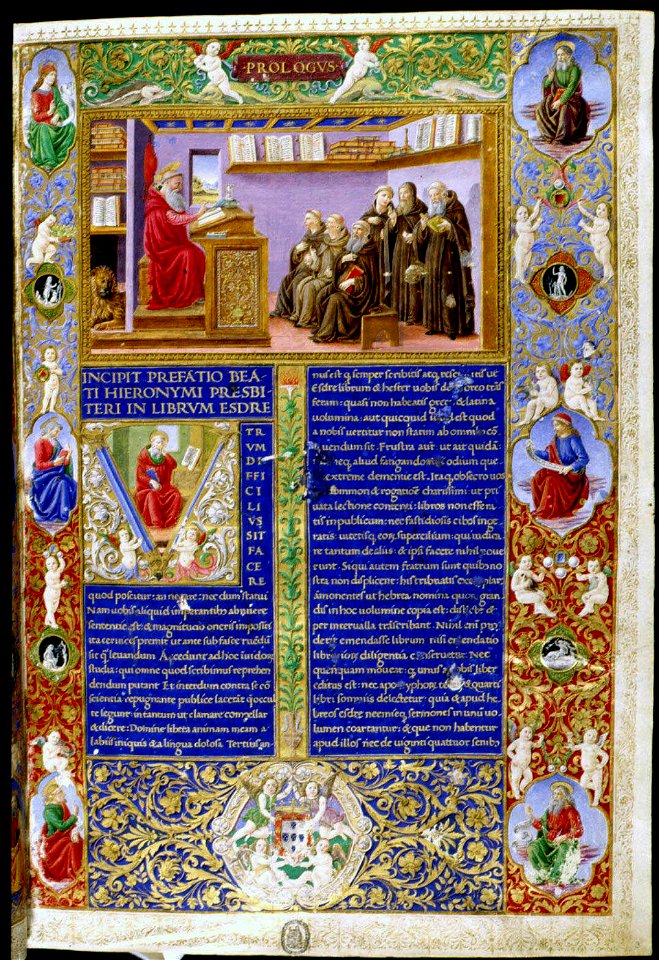 PROLOGVS
INCIPIT PREFATIO BEA-
TI HIERONYMI PRESBI-
TERI IN LIBRVM ESDRE
TR
VM
DI
FFI
CI
LI
VS
SIT
FA
CE
RE
quod poscitur: an negare: nec dum statui
Nam uobis aliquid imperantibus abnuere
sententie est: & magnitudo oneris impositi
ita ceruices premit ut ante sub fasce ruendum
sit quam leuandum. Accedunt ad hoc inuidorum
studia: qui omne quod scribimus reprehen
dendum putant. Et interdum contra se co
scientia repugnante publice lacerant quod occul
te legunt: in tantum ut clamare compellar
& dicere: Domine libera animam meam a
labiis iniquis & a lingua dolosa. Tertius an
nus est q semper scribitis atq
Esdre librum & hester uobis de
feram: quasi non habeatis & latina
uolumina: aut quicquid est quod
a nobis uertitur non statim ab omnibus co
uendum sit. Frustra aut ut ait quidam
neq aliud fatigando odium que
extreme dementie est. Itaq obsecro uos
domnion & rogatiane charissimi: ut pri
uata lectione contenti: libros non effera
tis in publicum: nec fastidiosis cibos inge
ratis: uitetisq eorum supercilium: qui iudica
re tantum de aliis: & ipsi facere nihil noue
runt. Siqui autem fratrum sunt quibus no
stra non displicent: his tribuatis exemplar,
admonentes ut hebrea nomina quorum gran
dis in hoc uolumine copia est: distincte &
per interualla trascribant. Nihil enim pro
derit emendasse librum nisi emendatio
librariorum diligentia conseruetur. Nec
quenquam moueat: q unus a nobis liber
editus est: nec apocryphorum tertii & quarti
libri somniis delectetur: quia & apud he
breos esdre neemieq sermones in unum uo
lumen coartantur: & que non habentur
apud illos nec de uiginti quattuor senib